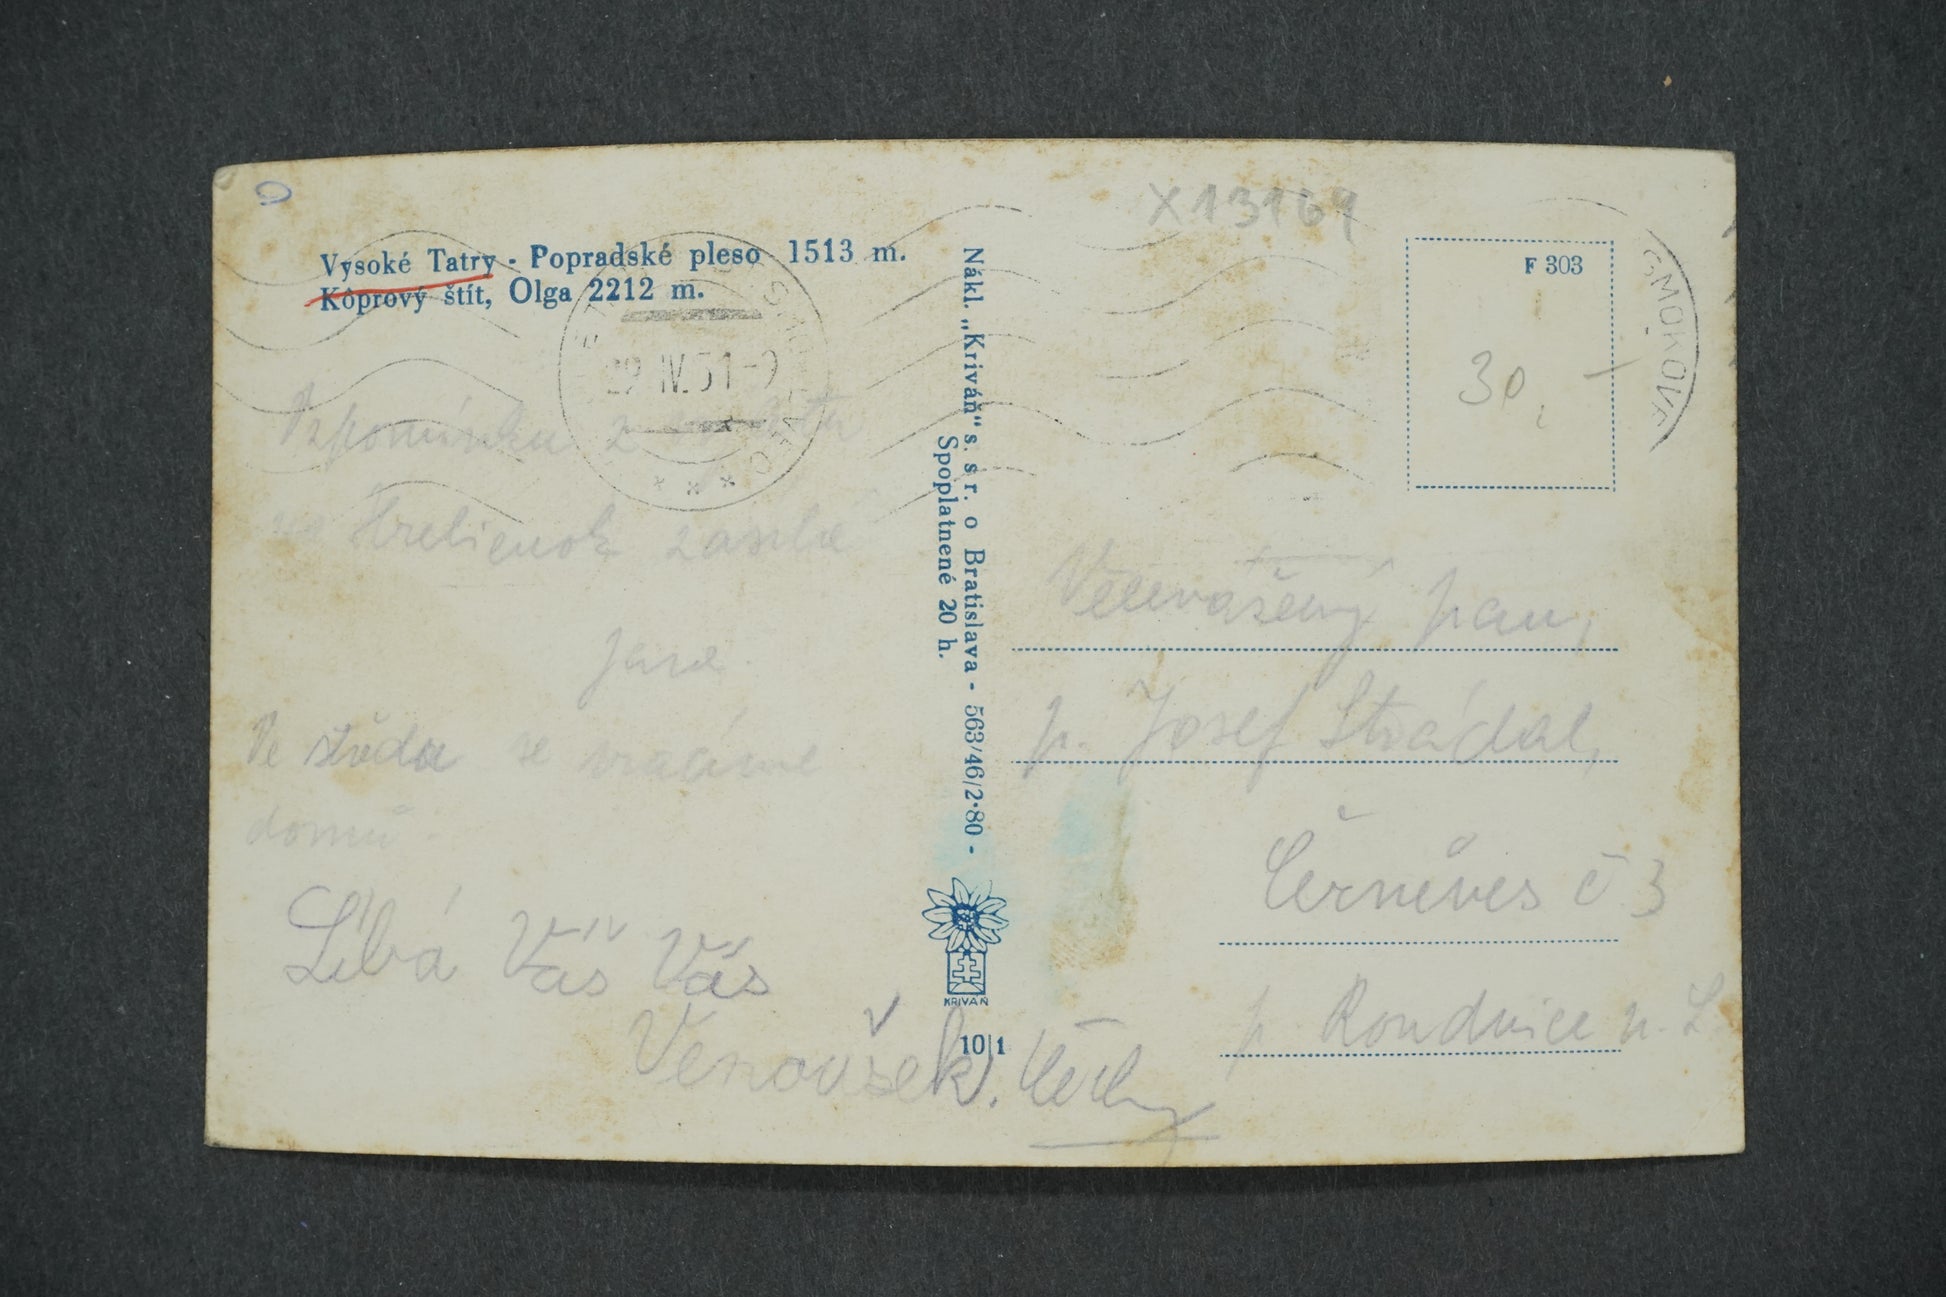 X13169
Vysoké Tatry - Popradské pleso 1513 m.
Kôprový štít, Olga 2212 m.
29 IV. 51-9
SMOKOVE
F 303
30
Vzpomínku z
Hrebienok zasílá
Jara.
Ve středu se vracíme
domů.
Líbá Vás Vás
Venoušek.
Nákl. „Kriváň" s. s r. o Bratislava - 563/46/2·80 -
Spoplatnené 20 h.
KRIVÁŇ
10|1
Velevážený pan,
p. Josef Strádal,
Černěves č 3
p. Roudnice n. L